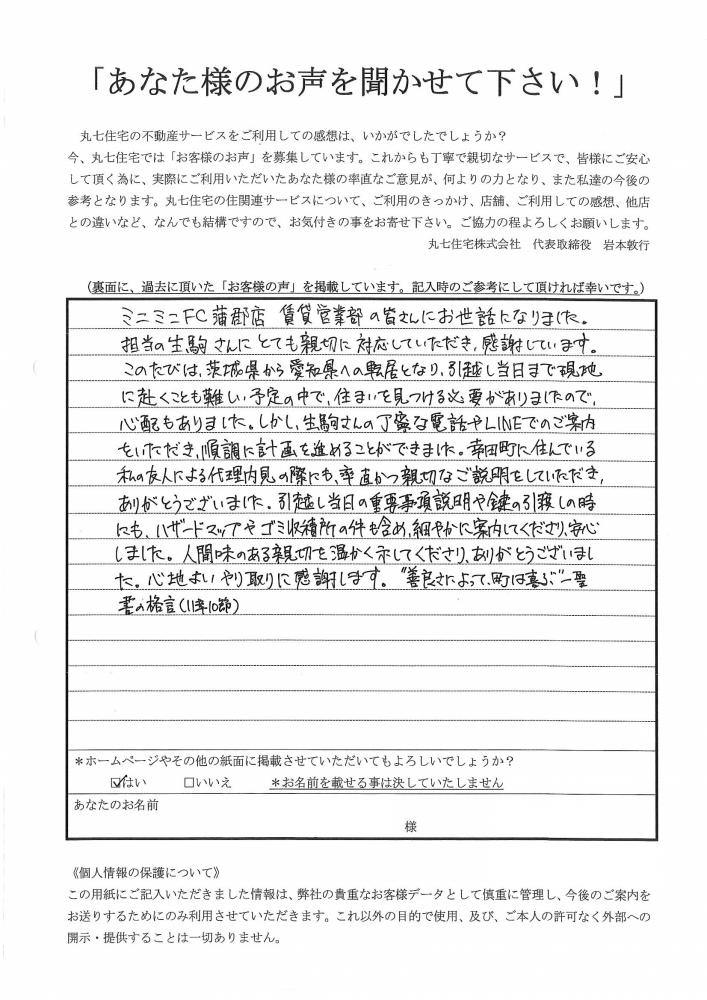 「あなた様のお声を聞かせて下さい！」
丸七住宅の不動産サービスをご利用しての感想は、いかがでしたでしょうか？
今、丸七住宅では「お客様のお声」を募集しています。これからも丁寧で親切なサービスで、皆様にご安心
して頂く為に、実際にご利用いただいたあなた様の率直なご意見が、何よりの力となり、また私達の今後の
参考となります。丸七住宅の住関連サービスについて、ご利用のきっかけ、店舗、ご利用しての感想、他店
との違いなど、なんでも結構ですので、お気付きの事をお寄せ下さい。ご協力の程よろしくお願いします。
丸七住宅株式会社　代表取締役　岩本敦行
（裏面に、過去に頂いた「お客様の声」を掲載しています。記入時のご参考にして頂ければ幸いです。）
ミニミニFC蒲郡店 賃貸営業部の皆さんにお世話になりました。
担当の生駒さんにとても親切に対応していただき、感謝しています。
このたびは、茨城県から愛知県への転居となり、引越し当日まで現地
に赴くことも難しい予定の中で、住まいを見つける必要がありましたので、
心配もありました。しかし、生駒さんの丁寧な電話やLINEでのご案内
をいただき、順調に計画を進めることができました。幸田町に住んでいる
私の友人による代理内見の際にも、率直かつ親切なご説明をしていただき、
ありがとうございました。引越し当日の重要事項説明や鍵の引渡しの時
にも、ハザードマップやゴミ収積所の件も含め、細やかに案内してくださり、安心
しました。人間味のある親切を温かく示してくださり、ありがとうございまし
た。心地よいやり取りに感謝します。"善良さによって、町は喜ぶ"ー聖
書の格言(11章10節)
＊ホームページやその他の紙面に掲載させていただいてもよろしいでしょうか？
☑はい　□いいえ　＊お名前を載せる事は決していたしません
あなたのお名前
様
《個人情報の保護について》
この用紙にご記入いただきました情報は、弊社の貴重なお客様データとして慎重に管理し、今後のご案内を
お送りするためにのみ利用させていただきます。これ以外の目的で使用、及び、ご本人の許可なく外部への
開示・提供することは一切ありません。